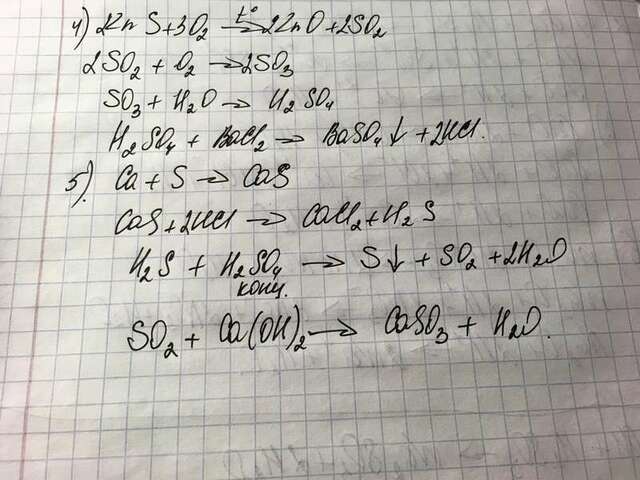 4) 2ZnS+3O₂ →t° 2ZnO+2SO₂
2SO₂ + O₂ → 2SO₃
SO₃ + H₂O → H₂SO₄
H₂SO₄ + BaCl₂ → BaSO₄↓ + 2HCl.
5) Ca + S → CaS
CaS+2HCl → CaCl₂+H₂S
H₂S + H₂SO₄ → S↓ + SO₂ + 2H₂O
конц.
SO₂ + Ca(OH)₂ → CaSO₃ + H₂O.